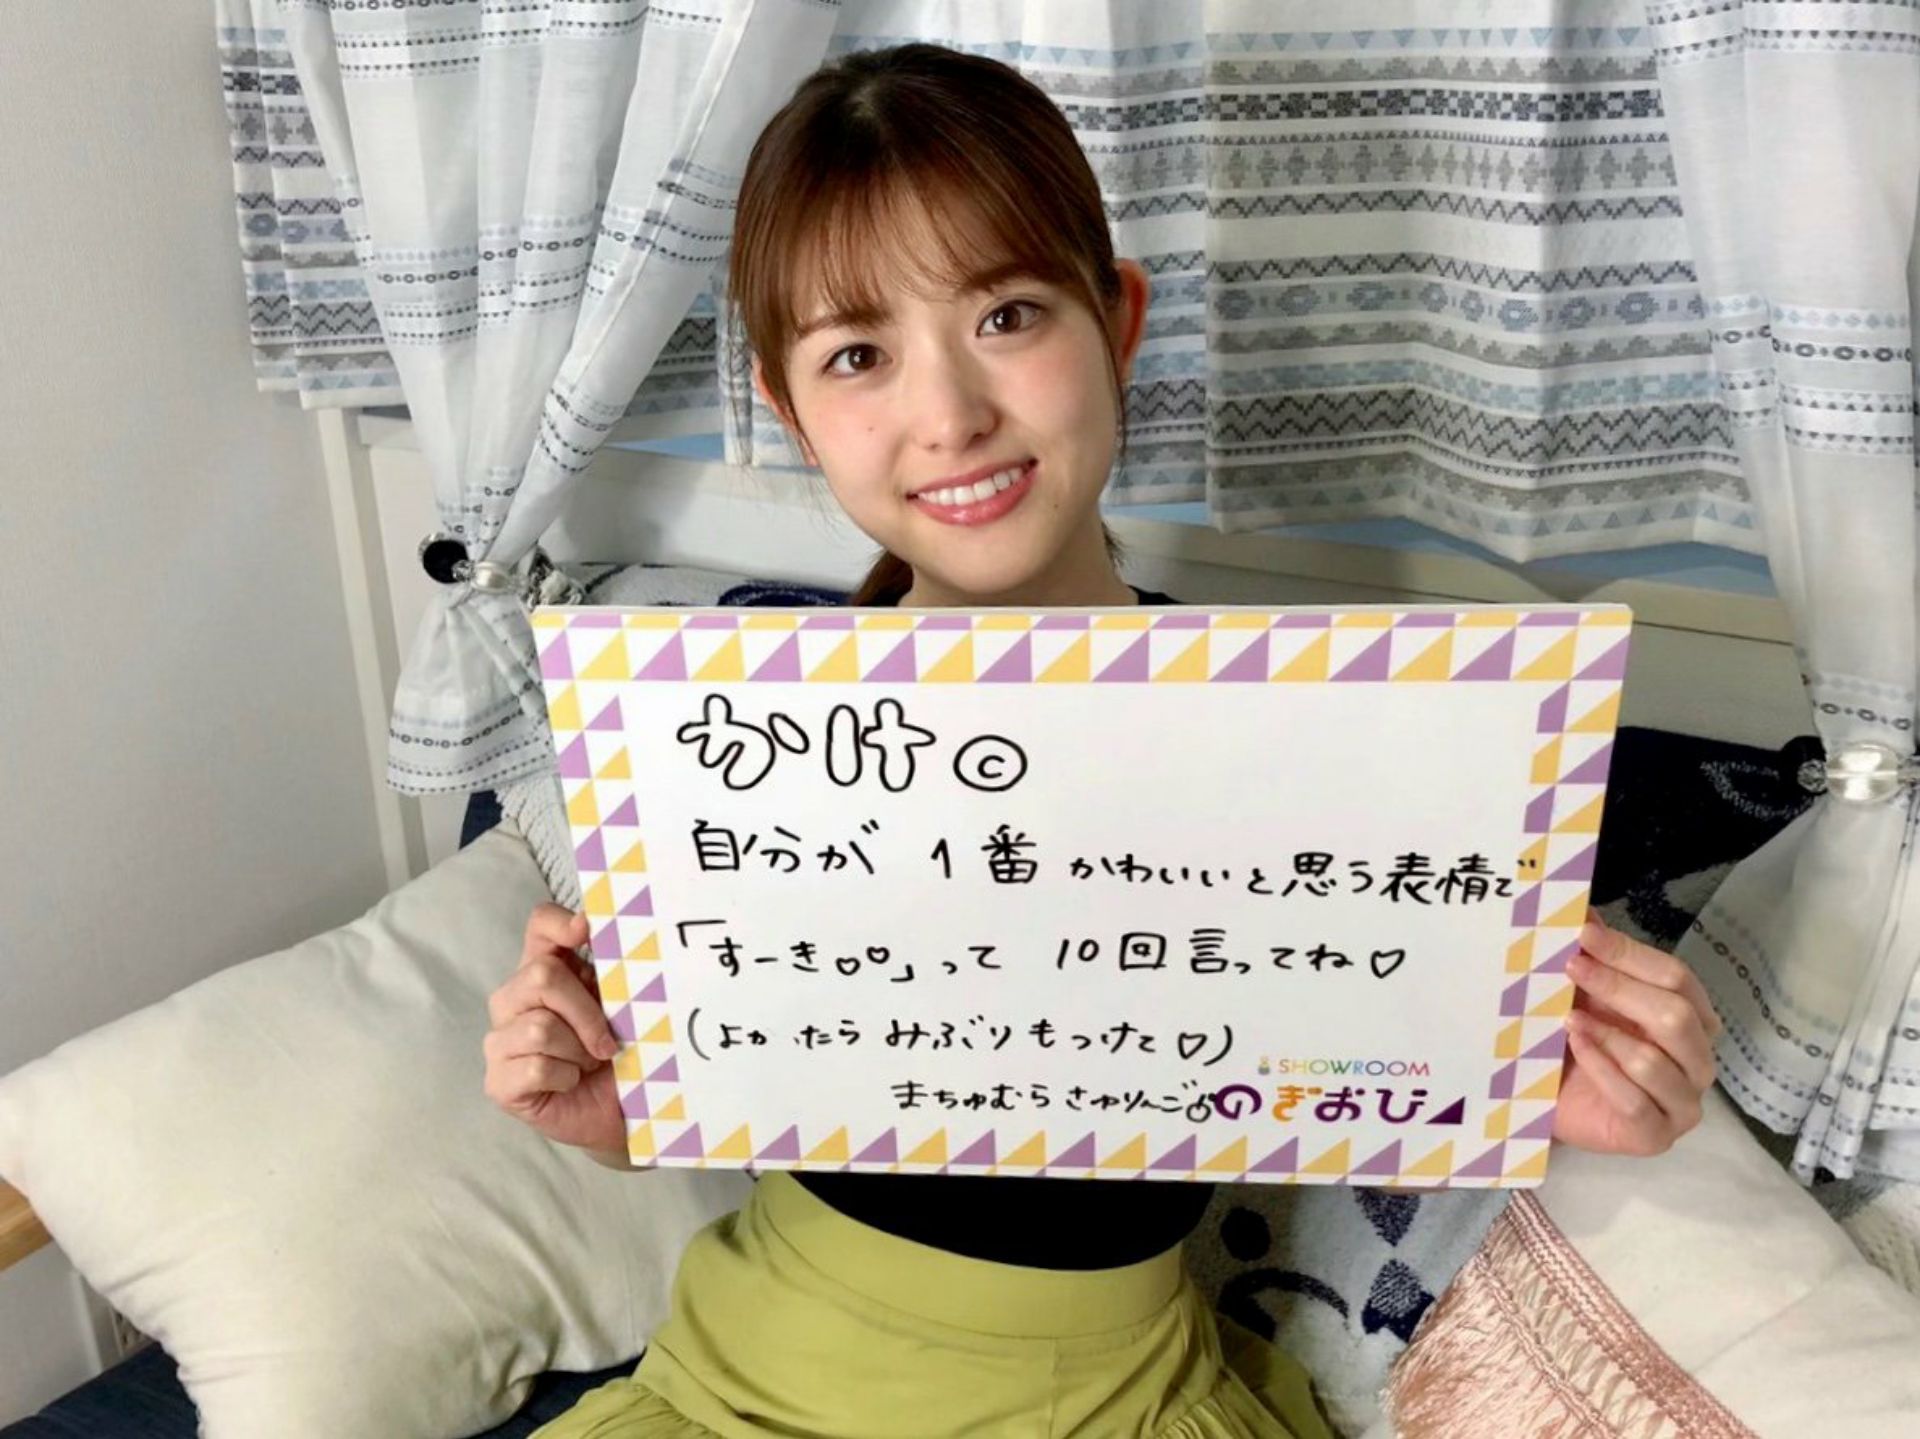 かけ©
自分が 1番 かわいいと思う表情で
「すーき♡♡」って 10回言ってね♡
(よかったら みぶりもつけて♡)
まちゅむらさゆりんご
SHOWROOM
のぎおび